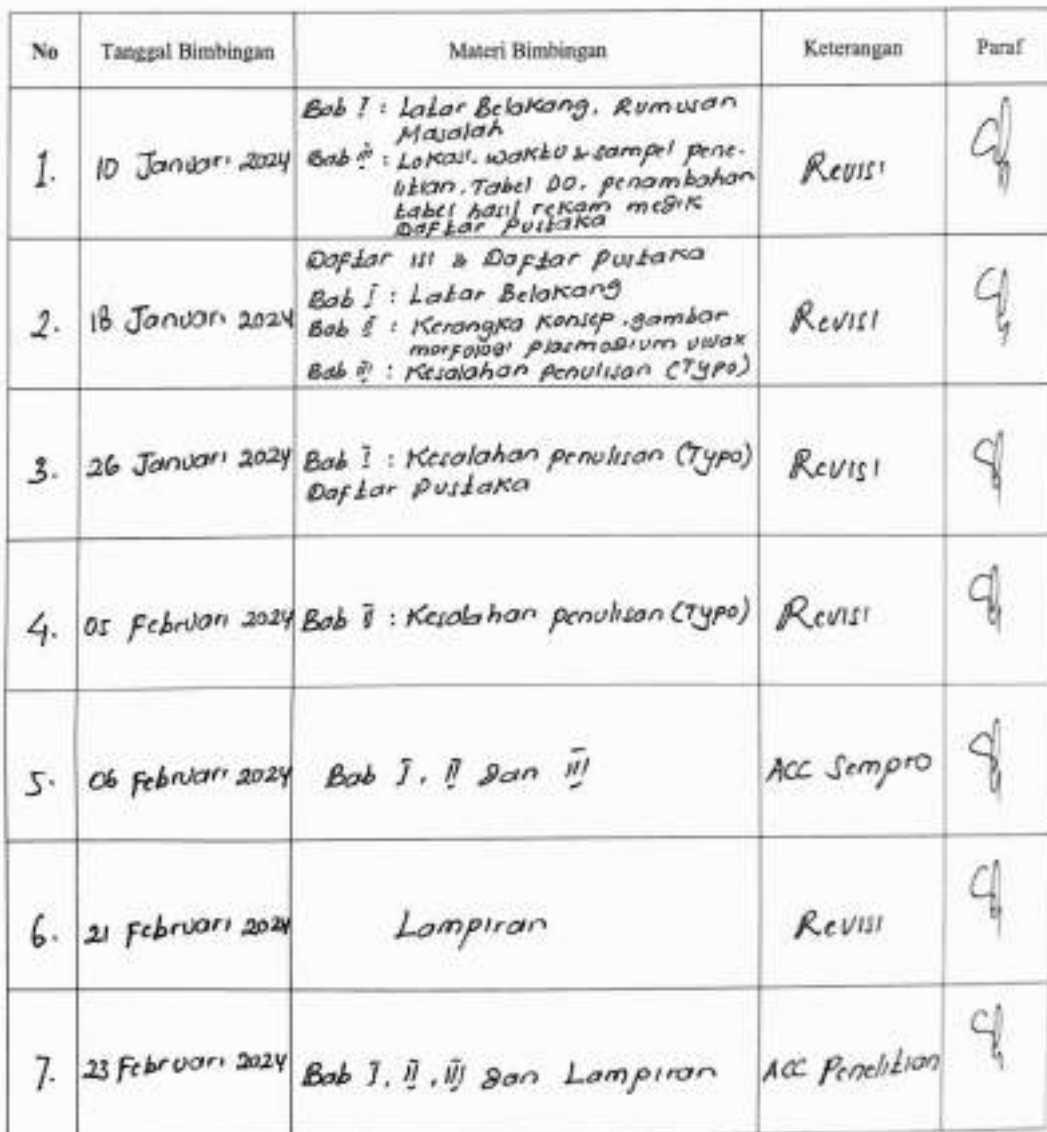 No Tanggal Bimbingan Materi Bimbingan Keterangan Paraf
Bab I : Latar Belakang, Rumusan
Masalah
1. 10 Januari 2024 Bab III : Lokasi, waktu & sampel pene- Revisi
litian, Tabel DO, penambahan
tabel hasil rekam medik
Daftar Pustaka
Daftar isi & Daftar pustaka
Bab I : Latar Belakang
2. 18 Januari 2024 Bab II : Kerangka Konsep, gambar Revisi
morfologi plasmodium vivax
Bab III : Kesalahan penulisan (Typo)
3. 26 Januari 2024 Bab I : Kesalahan penulisan (Typo) Revisi
Daftar Pustaka
4. 05 Februari 2024 Bab II : Kesalahan penulisan (Typo) Revisi
5. 06 Februari 2024 Bab I, II dan III ACC Sempro
6. 21 Februari 2024 Lampiran Revisi
7. 23 Februari 2024 Bab I, II, III dan Lampiran ACC Penelitian